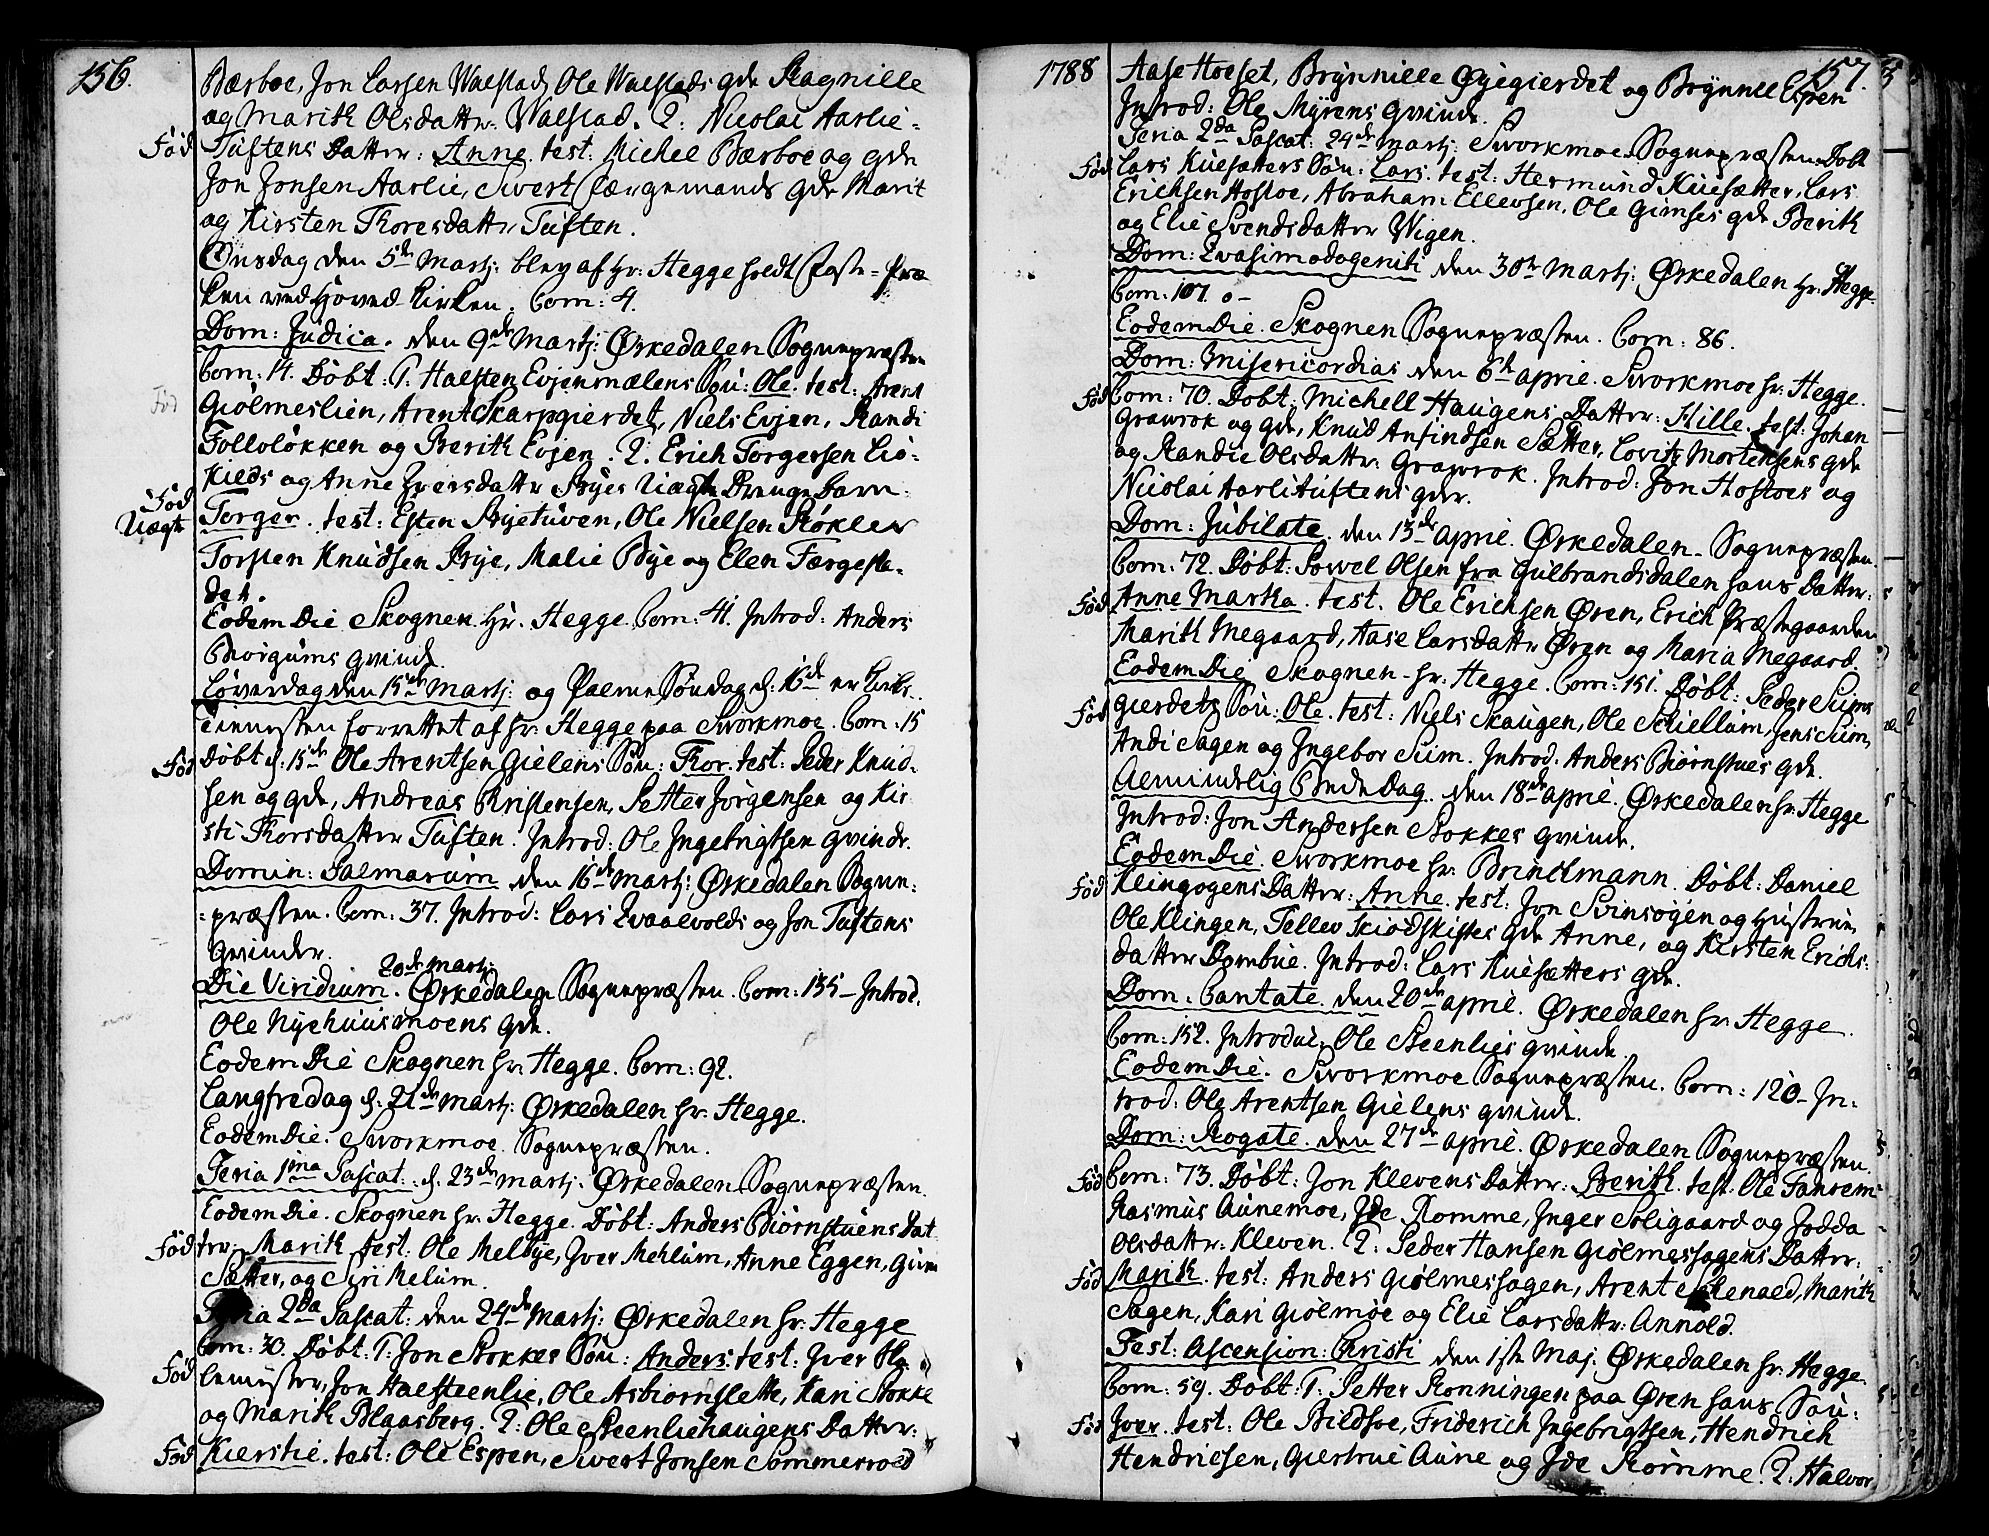 156.
Bærboe, Jon Larsen Walstad, Ole Walstads qde Ragnille
og Marith Olsdattr. Walstad. 2: Nicolai Aarlie-
Fød Tuftens Datter: Anne. test: Michel Bærboe og qde
Jon Jonsen Aarlie, Siwert Færgemands qde Marit
og Kirsten Thoresdattr Tuften.
Onsdag den 5de Martj: blev af Hr: Hegge holdt Faste-præ
ken ved Hoved Kirken. Com: 4.
Dom: Judica. den 9de Martj: Ørkedalen Sognepræsten
Com: 14. Døbt: 1. Halsten Evjenmælens Søn: Ole. test: Arent
Fød Giölmeslien, Arent Skarpgierdet, Niels Evjen, Randi
Follolökken og Berith Evjen. 2. Erich Torgersen Liö-
Kieds og Anne Iversdattr Byes Uægte Drenge Barn:
Fød Uægte Torger. test: Esten Byetuven, Ole Nielsen Røkler
Torsten Knudsen Bye, Malie Bye og Elen Færgesta-
det.
Eodem Die Skognen Hr. Hegge. Com: 41. Introd: Anders
Borgums qvinde.
Løverdag den 15de Martj: og Palme Søndag d: 16de er Kirke
Tienesten forrettet af Hr. Hegge paa Sworkmoe. Com: 15
Fød Døbt d: 15de Ole Arentsen Gielens Søn: Thor. test: Peder Knud-
sen og qde, Andreas Christensen, Petter Jörgensen og Kir-
sti Thorsdatter Tuften. Introd: Ole Ingebrigtsen qvinde.
Domin: Palmarum den 16de Martj: Ørkedalen Sogne-
præsten. Com: 37. Introd: Lars Qvaalvolds og Jon Tuftens
qvinder.
Die Viridium. 20de Martj: Ørkedalen Sognepræsten. Com: 135- Introd.
Ole Nyehuusmoens qde.
Eodem Die Skognen hr: Hegge. Com: 92.
Langfredag d: 21de Martj: Ørkedalen hr. Hegge.
Eodem Die. Sworkmoe. Sognepræsten.
Feria 1ma Pascat: d. 23de Martj. Ørkedalen Sognepræsten.
Eodem Die. Skognen hr: Hegge. Døbt: Anders Biörnstuens Dat
Fød ter: Marith test: Ole Melbye, Iver Mehlum, Anne Eggen, Guru
Sætter, og Siri Melum.
Feria 2da Pascat: den 24de Martj: Ørkedalen hr: Hegge
Com: 30. Døbt: 1: Jon Stokkes Søn: Anders. test: Iver
Fød Jon Halsteenlie, Ole Asbiörnslette, Kari Stokke
og Marith Blaasberg. 2: Ole Steenliehaugens Datter:
Fød Kierstie. test: Ole Espen, Siwert Jonsen Sommervold
1788 157.
Aase Hoeset, Brynnille Øyegierdet og Brynnel Espen
Introd: Ole Myrens qvinde.
Feria 2da Pascat: 24de Martj: Sworkmoe Sognepræsten. Døbt
Fød Lars Kuesætters Søn: Lars. test: Hermund Kuesætter, Lars
Erichsen Hostoe, Abraham Ellevsen, Ole Gimses qde Berith
og Elie Svendsdatter Wigen.
Dom: Qvasimodogeniti den 30te Martj: Ørkedalen Hr. Hegge.
Com: 107. o-
Eodem Die. Skognen Sognepræsten. Com: 86.
Dom: Misericordias den 6te april. Sworkmoe hr. Hegge.
Fød Com: 70. Døbt: Michell Haugens Datter: Kille. test: Johan
Grawrok og qde, Knud Anfindsen Sætter, Lovits Mortensens qde
og Randie Olsdattr: Grawrok. Introd: Jon Hostoes og
Nicolai Aarlituftens qder.
Dom: Jubilate. den 13de april. Ørkedalen. Sognepræsten.
Com: 72. Døbt: Powel Olsen fra Gulbrandsdalen hans Datter:
Fød Anne Marta. test. Ole Erichsen Øren, Erich Præstegaarden
Marith Megaard, Aase Larsdattr Øren og Maria Megaard.
Eodem Die Skognen - hr: Hegge. Com: 151. Døbt: Peder Sums
Fød gierdets Søn: Ole. test: Niels Skaugen, Ole Schiellum, Jens Sum,
Andi Sagen og Ingebor Sum. Introd. Anders Biörnstues qde.
Almindelig Bededag den 18de april. Ørkedalen hr. Hegge
Introd: Jon Andersen Stokkes qvinde.
Eodem Die. Sworkmoe hr: Brinckmann. Døbt: Daniel
Fød Klingøgens Datter: Anne. test: Jon Svinsögen og Hustrue,
Ole Klingen, Tellev Skiödskiftes qde Anne, og Kirsten Erichs-
datter Dombue. Introd: Lars Kuesætters qde.
Dom: Cantate. den 20de april. Ørkedalen hr. Hegge.
Com: 152. Introduc. Ole Steenlies qvinde.
Eodem Die. Sworkmoe Sognepræsten. Com: 120- In-
trod: Ole Arentsen Gielens qvinde.
Dom: Rogate. den 27de april. Ørkedalen Sognepræsten.
Fød Com: 73. Døbt: Jon Klevens Datter: Berith. test: Ole Fanrem
Rasmus Aunemoe, Ide Romme, Inger Soligaard og Jodda
Olsdattr. Kleven. 2: Peder Hansen Giölmesagens Datter:
Fød Marith. test: Anders Giölmessagen, Arent Solenæd, Marith
Sagen, Kari Giölmöe og Elie Larsdattr: Annold.
Fest: Ascension: Christi den 1ste Maj. Ørkedalen hr: Hegge.
Com: 59. Døbt: 1: Petter Ronningen paa Øren hans Søn:
Fød Iver. test: Ole Bildsoe, Friderich Ingebrigtsen, Hendrich
Hendricsen, Giertrue Aune og Ide Romme. 2: Halvor